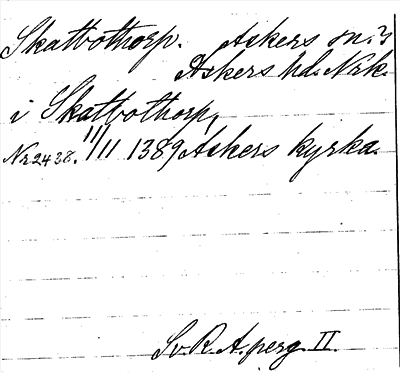 Skatbothorp. Askers sn.?
Askers hd. Närk.
i Skatbothorp,
Nr 2438. 11/11 1389 Askers kyrka.
Sv. R. A. perg. II.